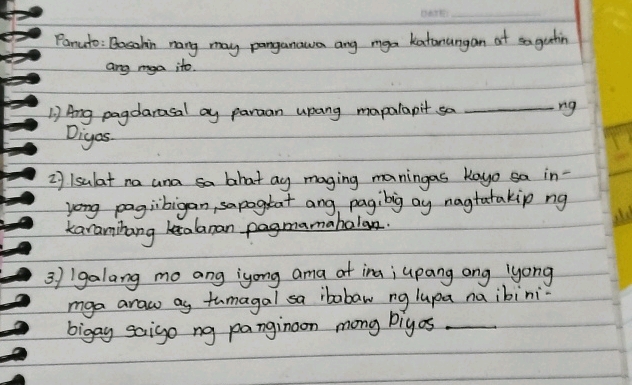 DATE:
Panuto: Basahin nang may pangunawa ang mga katanungan at sagutin
ang mga ito.
1.) Ang pagdarasal ay paraan upang mapalapit sa ________ ng
Diyos.
2.) Isulat na una sa lahat ay maging maningas kayo sa in-
yong pagiibigan, sapagkat ang pagibig ay nagtatakip ng
karamihang kasalanan pagmamahalan.
3.) Igalang mo ang iyong ama at ina; upang ang iyong
mga araw ay tumagal sa ibabaw ng lupa na ibini-
bigay saiyo ng panginoon mong Diyos ____